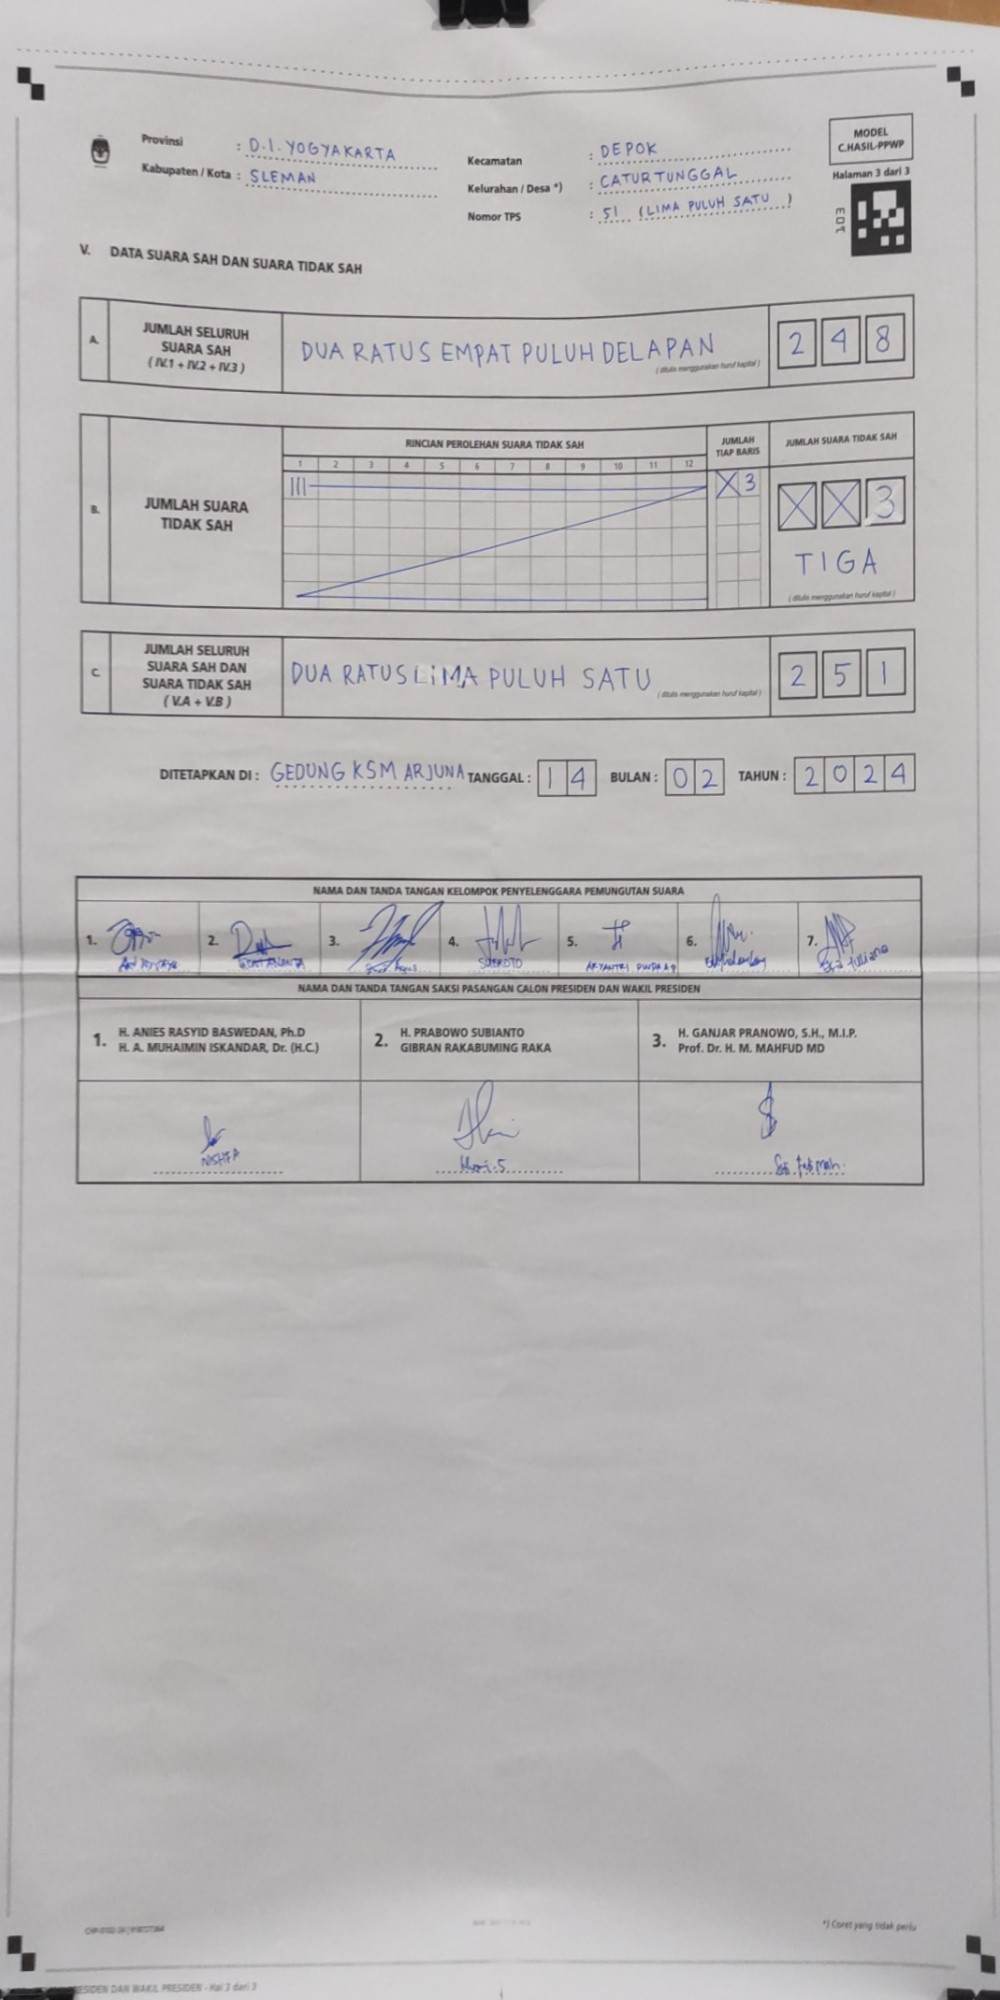 Provinsi : D.I. YOGYAKARTA
Kabupaten / Kota : SLEMAN
Kecamatan : DEPOK
Kelurahan / Desa *) : CATURTUNGGAL
Nomor TPS : 51 (LIMA PULUH SATU )
MODEL
C.HASIL-PPWP
Halaman 3 dari 3
V. DATA SUARA SAH DAN SUARA TIDAK SAH
A.
JUMLAH SELURUH
SUARA SAH
( IV.1 + IV.2 + IV.3 )
DUA RATUS EMPAT PULUH DELAPAN
( ditulis menggunakan huruf kapital )
2 4 8
B.
JUMLAH SUARA
TIDAK SAH
RINCIAN PEROLEHAN SUARA TIDAK SAH
1 2 3 4 5 6 7 8 9 10 11 12
JUMLAH
TIAP BARIS
JUMLAH SUARA TIDAK SAH
III
X 3
X X 3
TIGA
( ditulis menggunakan huruf kapital )
C.
JUMLAH SELURUH
SUARA SAH DAN
SUARA TIDAK SAH
( V.A + V.B )
DUA RATUS LIMA PULUH SATU
( ditulis menggunakan huruf kapital )
2 5 1
DITETAPKAN DI : GEDUNG KSM ARJUNA TANGGAL : 14 BULAN : 02 TAHUN : 2024
NAMA DAN TANDA TANGAN KELOMPOK PENYELENGGARA PEMUNGUTAN SUARA
1. 2. 3. 4. 5. 6. 7.
SUPROTO
NAMA DAN TANDA TANGAN SAKSI PASANGAN CALON PRESIDEN DAN WAKIL PRESIDEN
1. H. ANIES RASYID BASWEDAN, Ph.D
H. A. MUHAIMIN ISKANDAR, Dr. (H.C.)
2. H. PRABOWO SUBIANTO
GIBRAN RAKABUMING RAKA
3. H. GANJAR PRANOWO, S.H., M.I.P.
Prof. Dr. H. M. MAHFUD MD
*) Coret yang tidak perlu
DAN WAKIL PRESIDEN - Hal 3 dari 3